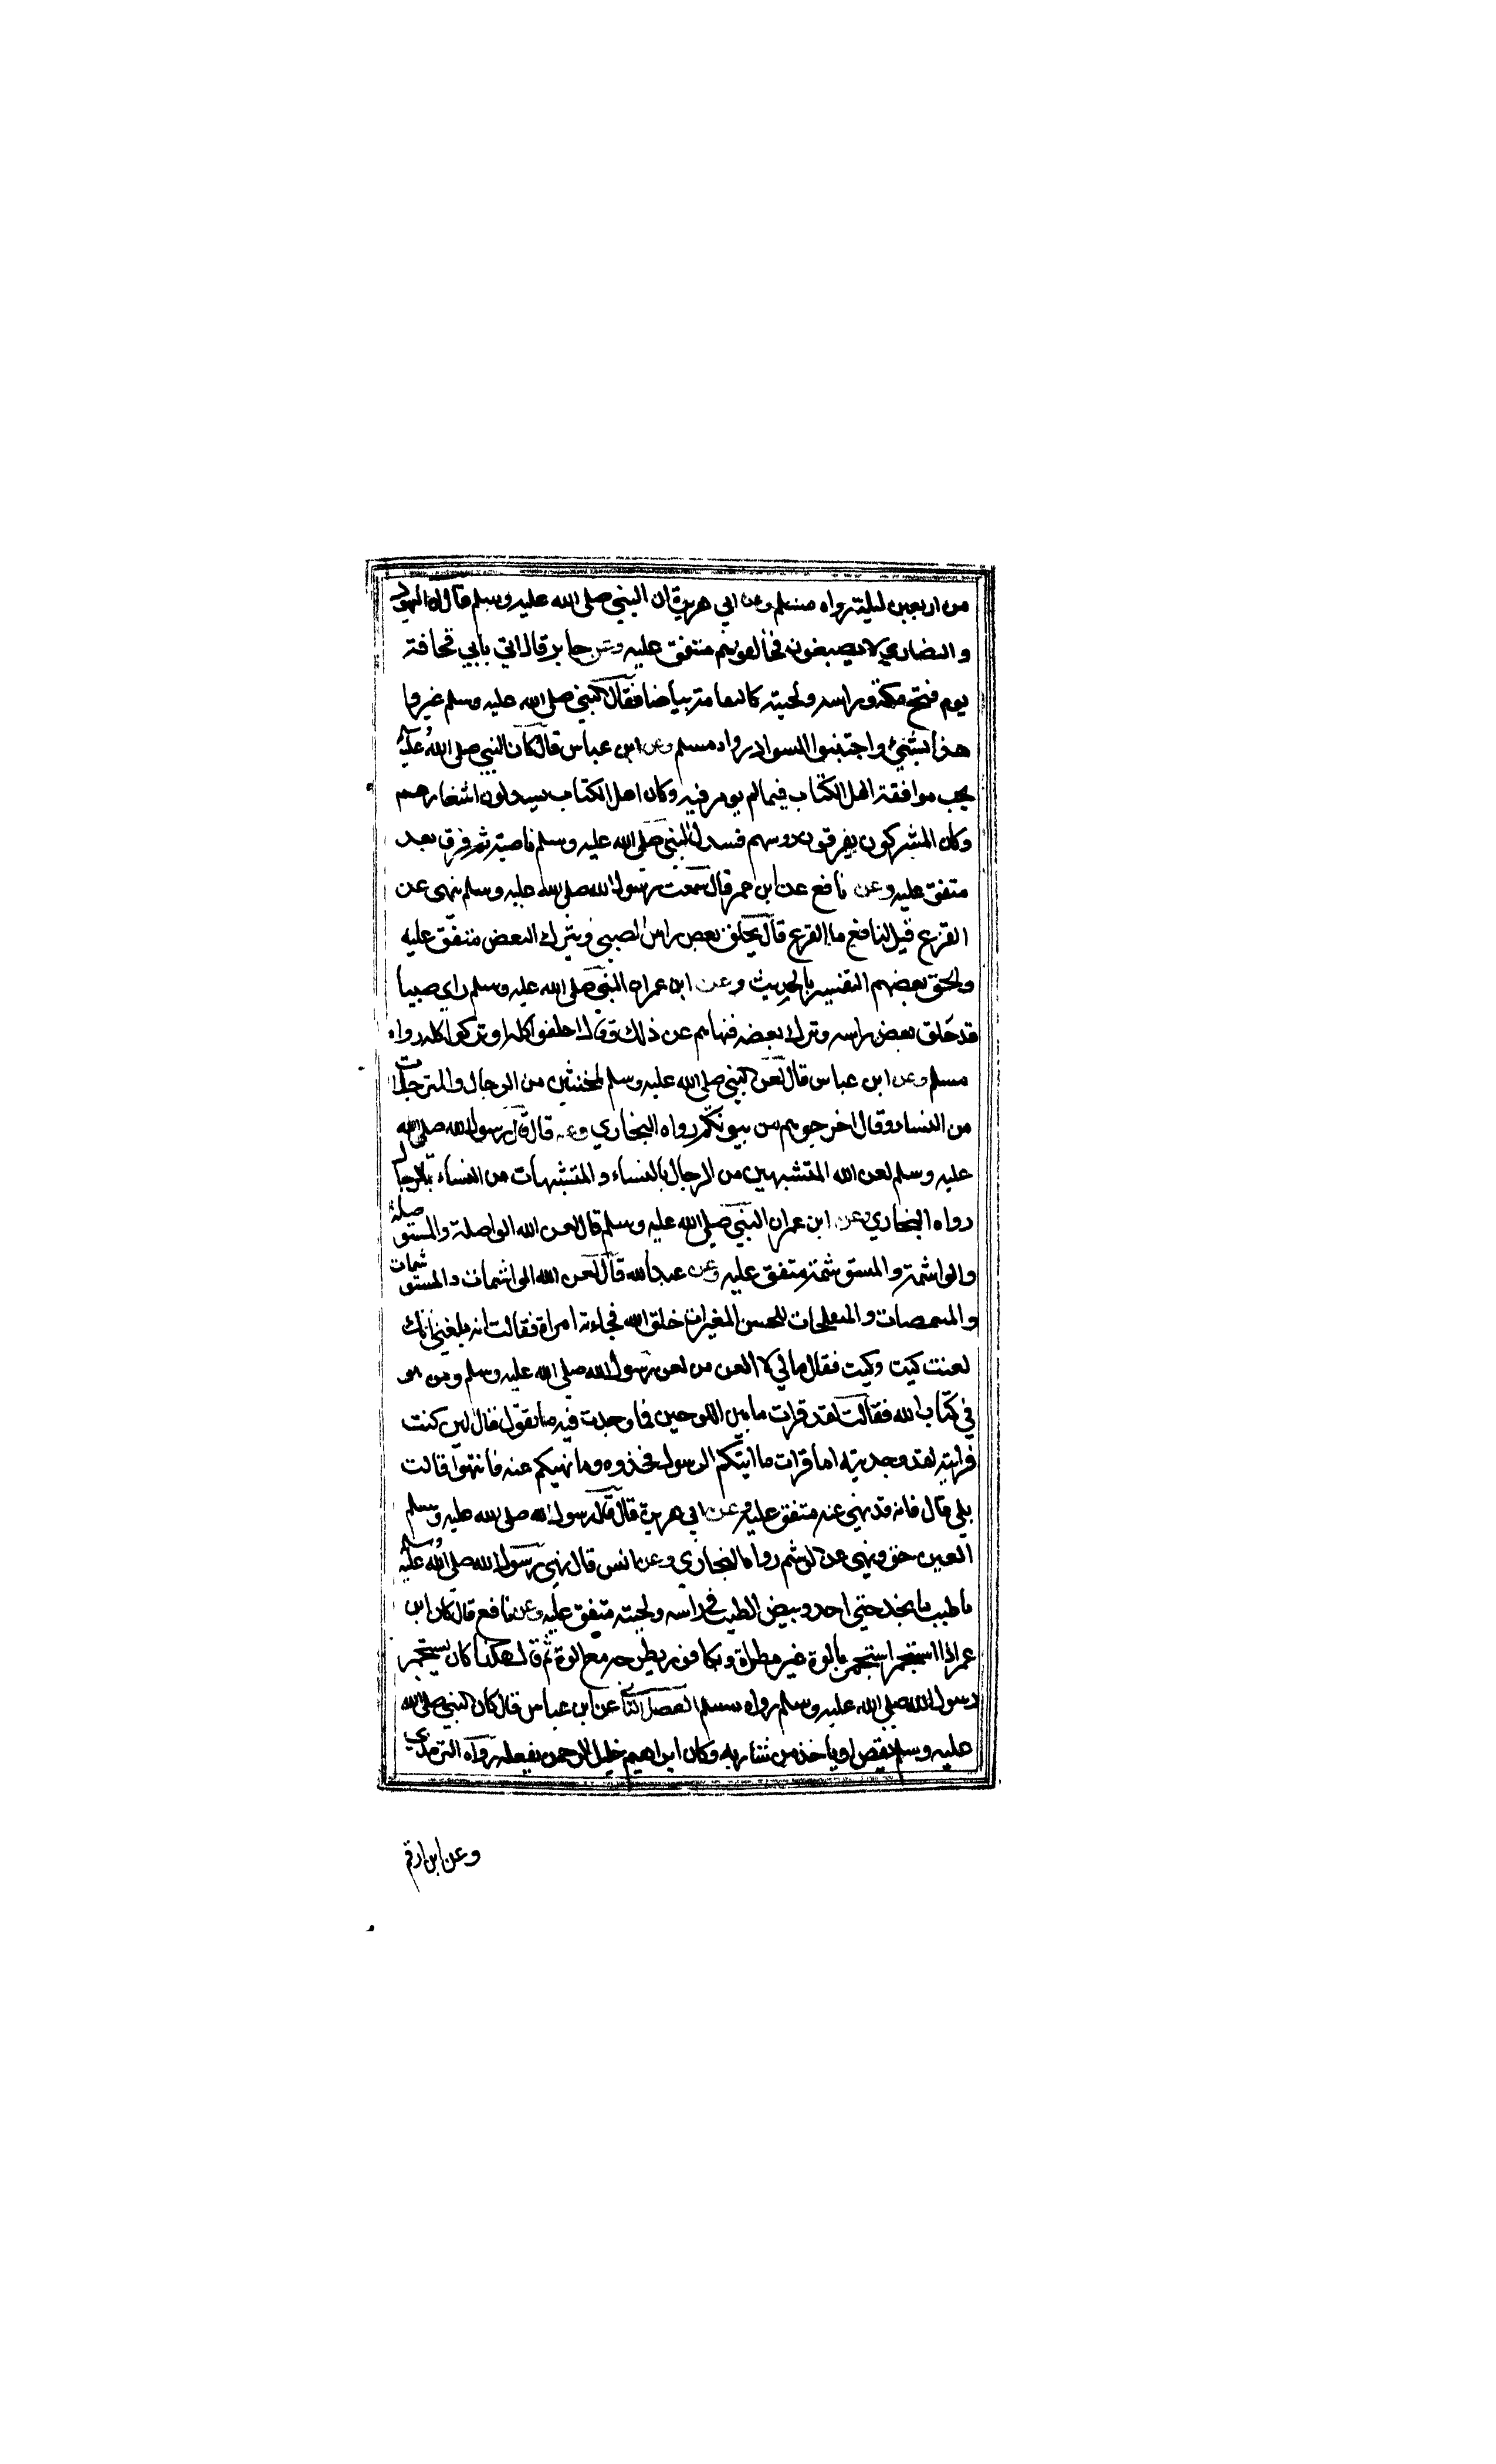 من اربعين ليلة رواه مسلم وعن ابي هريرة ان النبي صلى الله عليه وسلم قال ان اليهود
والنصاري لا يصبغون فخالفوهم متفق عليه وعن جابر قال اتي بابي قحافة
يوم فتح مكة وراسه ولحيته كالثغامة بياضا فقال النبي صلى الله عليه وسلم غيروا
هذا بشئ واجتنبوا السواد رواه مسلم وعن ابن عباس قال كان النبي صلى الله عليه
يحب موافقة اهل الكتاب فيما لم يومر فيه وكان اهل الكتاب يسدلون اشعارهم
وكان المشركون يفرقون روسهم فسدل النبي صلى الله عليه وسلم ناصيته ثم فرق بعد
متفق عليه وعن نافع عن ابن عمر قال سمعت رسول الله صلى الله عليه وسلم نهى عن
القزع قيل لنافع ما القزع قال يحلق بعض راس الصبي ويترك البعض متفق عليه
والحق بعضهم التفسير بالحديث وعن ابن عمر ان النبي صلى الله عليه وسلم راي صبيا
قد حلق بعض راسه وترك بعضه فنهاهم عن ذلك وقال احلقوا كله او تركوا كله رواه
مسلم وعن ابن عباس قال لعن النبي صلى الله عليه وسلم المخنثين من الرجال والمترجلات
من النساء وقال اخرجوهم من بيوتكم رواه البخاري وعنه قال قال رسول الله صلى الله
عليه وسلم لعن الله المتشبهين من الرجال بالنساء والمتشبهات من النساء بالرجال
رواه البخاري وعن ابن عمر ان النبي صلى الله عليه وسلم قال لعن الله الواصلة والمستوصلة
والواشمة والمستوشمة متفق عليه وعن عبد الله قال لعن الله الواشمات والمستوشمات
والمتنمصات والمتفلجات للحسن المغيرات خلق الله فجاءته امراة فقالت انه بلغني انك
لعنت كيت وكيت فقال مالي لا العن من لعن رسول الله صلى الله عليه وسلم ومن هو
في كتاب الله فقالت لقد قرات ما بين اللوحين فما وجدت فيه ما تقول قال لئن كنت
قراتيه لقد وجدتيه اما قرات ما اتيكم الرسول فخذوه وما نهيكم عنه فانتهوا قالت
بلي قال فانه قد نهي عنه متفق عليه وعن ابي هريرة قال قال رسول الله صلى الله عليه وسلم
العين حق ونهي عن الوشم رواه البخاري وعن انس قال نهى رسول الله صلى الله عليه وسلم
باطيب ما يجد حتي اجد وبيض الطيب في راسه ولحيته متفق عليه وعن نافع قال كان ابن
عمر اذا استجمر استجمر بالوة غير مطراة وبكافور يطرحه مع الوة ثم قال هكذا كان يستجمر
رسول الله صلى الله عليه وسلم رواه مسلم الفصل الثاني عن ابن عباس قال كان النبي صلى الله
عليه وسلم يقص او ياخذ من شاربه وكان ابراهيم خليل الرحمن يفعله رواه الترمذي
وعن ابن ارقم